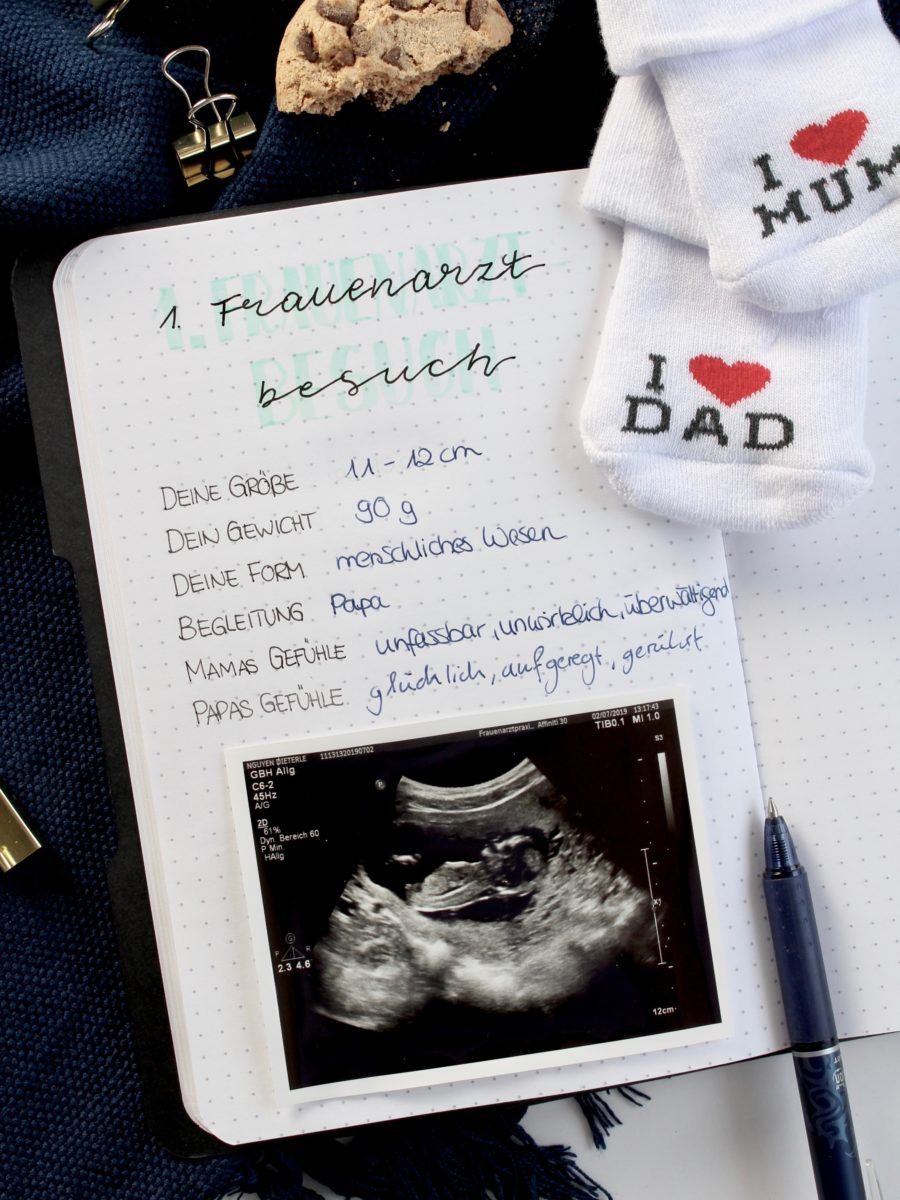 I ❤ MUM
I ❤ DAD
1. Frauenarzt-
besuch
1. FRAUENARZT-
BESUCH
DEINE GRÖßE 11 - 12 cm
DEIN GEWICHT 90 g
DEINE FORM menschliches Wesen
BEGLEITUNG Papa
MAMAS GEFÜHLE unfassbar, unwirklich, überwältigend
PAPAS GEFÜHLE glücklich, aufgeregt, gerührt
NGUYEN DIETERLE 11131320190702 Frauenarztpraxi.. Affiniti 30 02/07/2019 13:17:43
GBH Allg TIB0.1 MI 1.0
C6-2
45Hz
A/G
S3
2D
61%
Dyn. Bereich 60
P Min
HAllg
G
P R
2.3 4.6
12cm